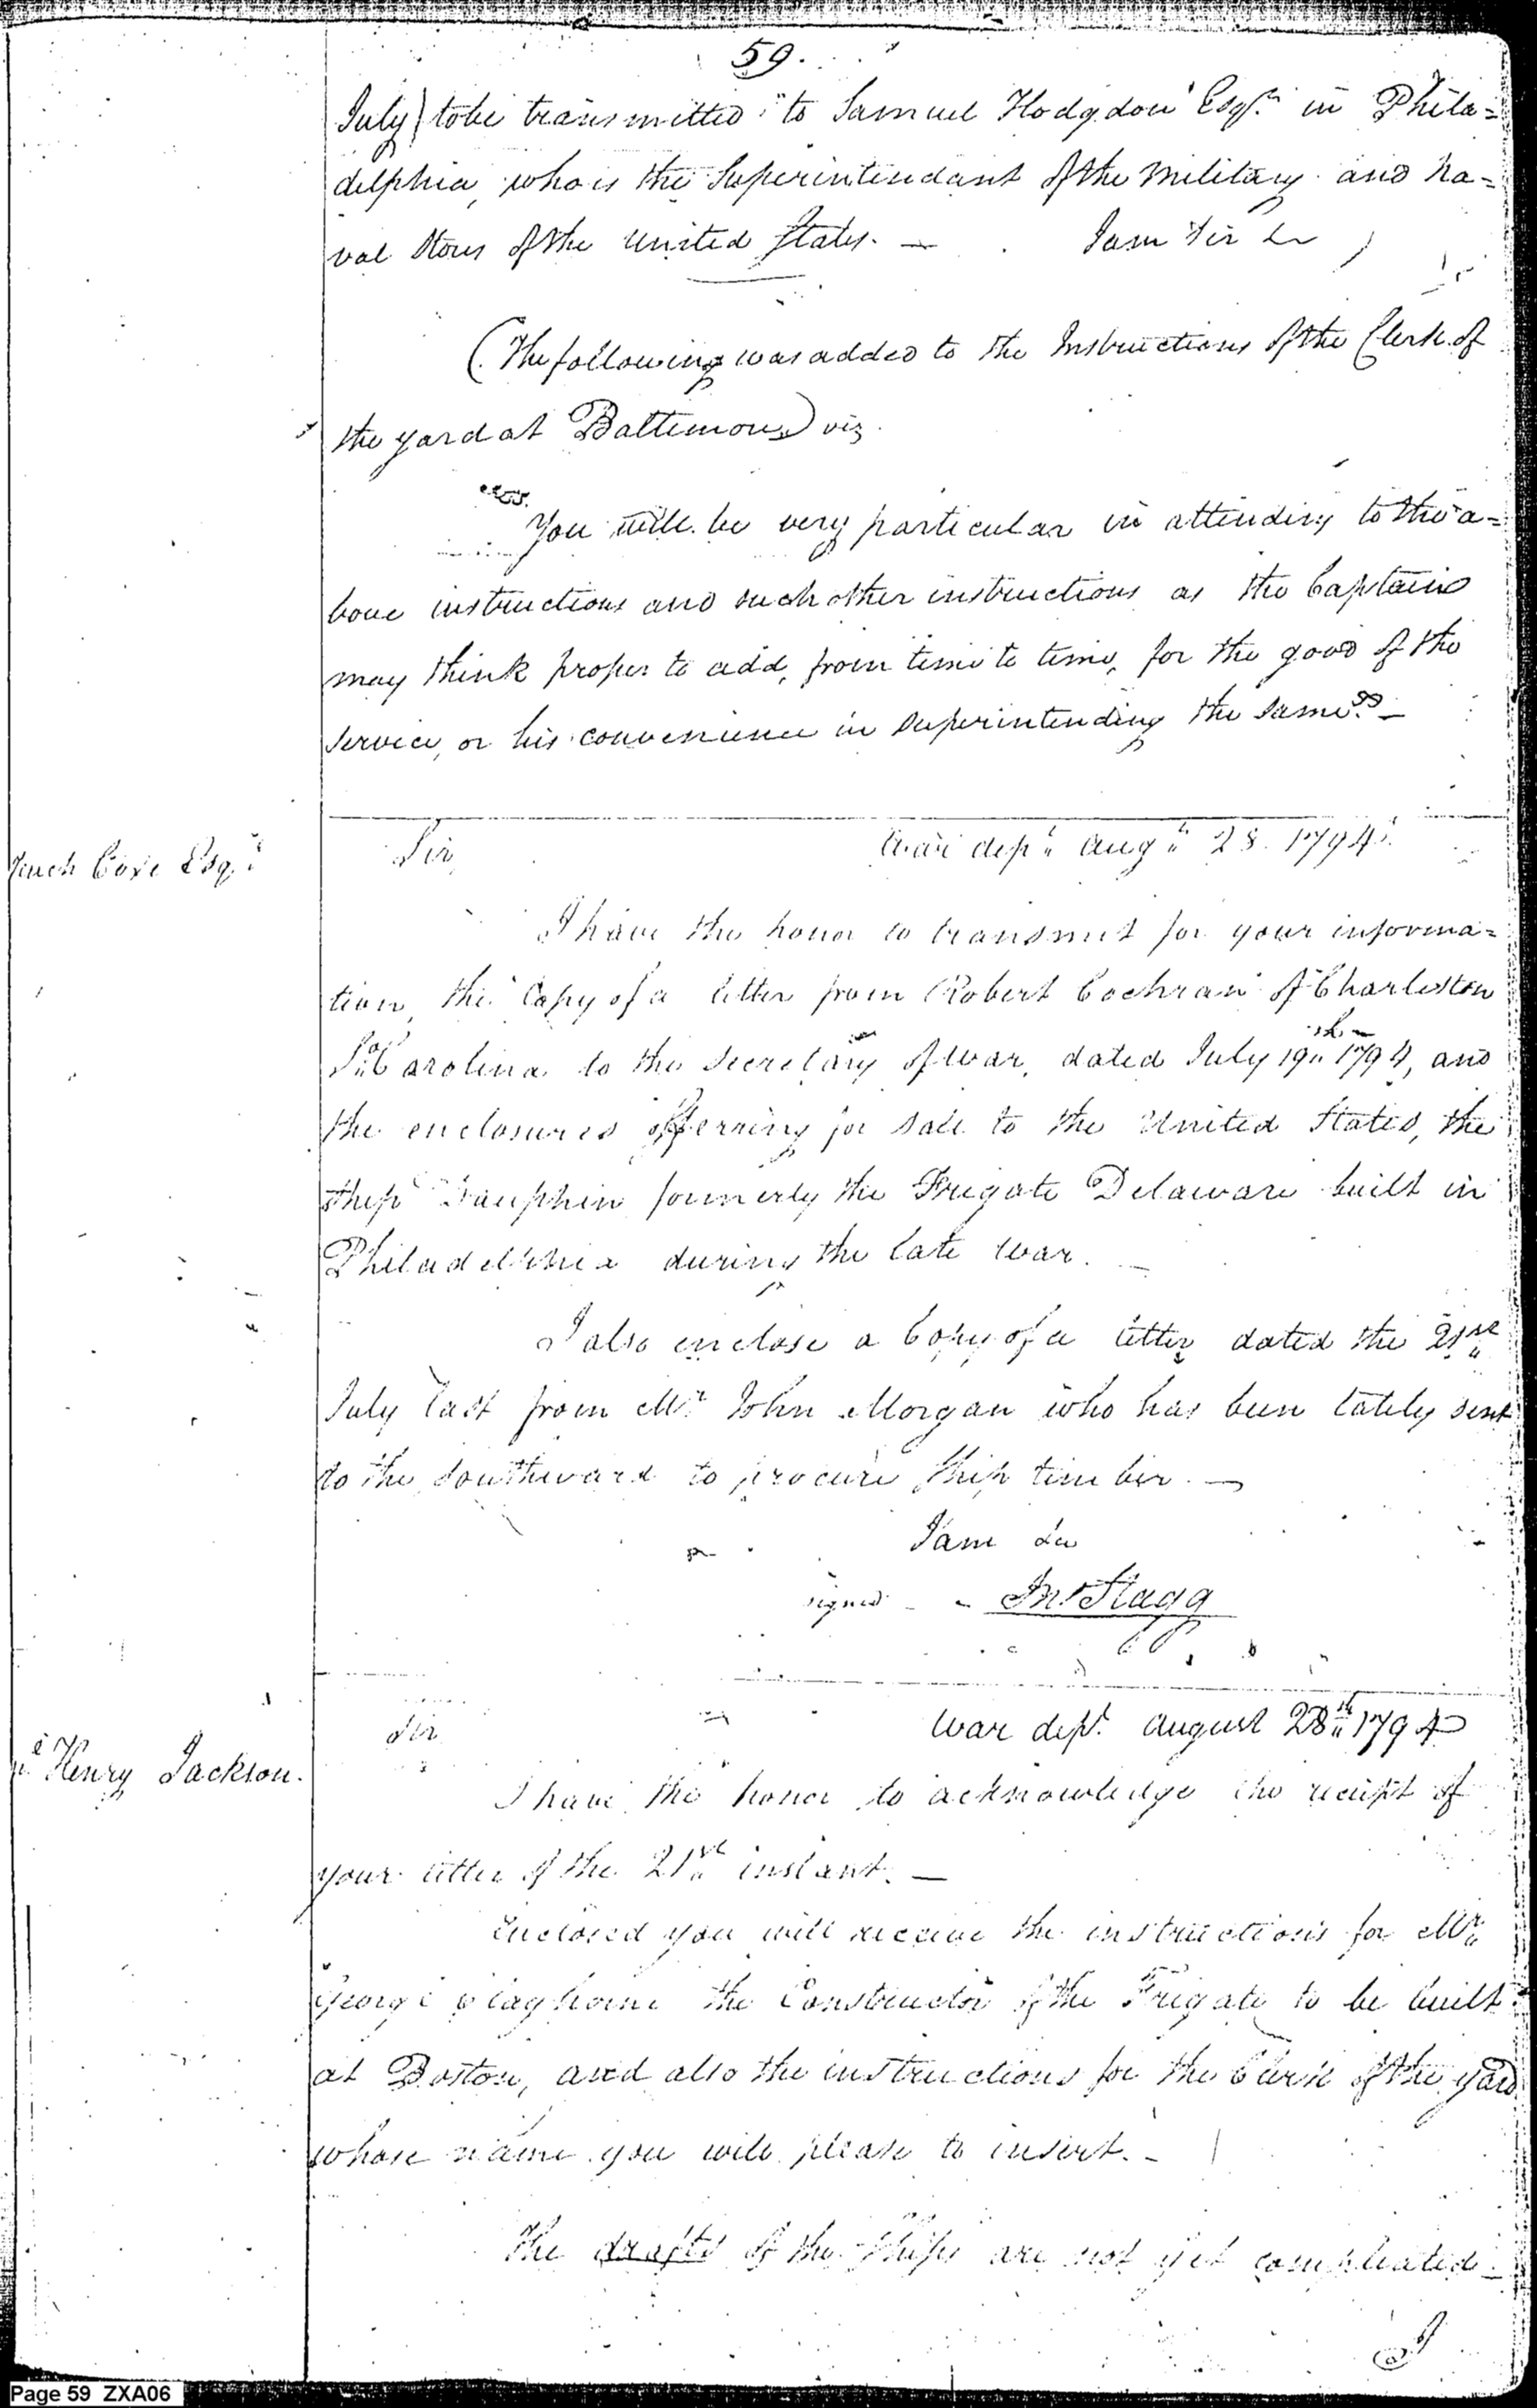 59.
July) to be transmitted to Samuel Hodgdon Esqr. in Phila=
delphia, who is the Superintendant of the military and na=
val Stores of the United States. — I am Sir &c
(The following was added to the Instructions of the Clerk of
the yard at Baltimore) viz.
"You will be very particular in attending to the a=
bove instructions and such other instructions as the Captain
may think proper to add, from time to time, for the good of the
service, or his convenience in superintending the same." —
Tench Coxe Esqr.
Sir, War dept. Augt. 28. 1794.
I have the honor to transmit for your informa=
tion, the Copy of a letter from Robert Cochran of Charleston
So. Carolina to the Secretary of War, dated July 19th 1794, and
the enclosures offerring for sale to the United States, the
Ship Dauphin formerly the Frigate Delaware built in
Philadelphia during the late War. —
I also enclose a Copy of a letter dated the 21st
July last from Mr. John Morgan who has been lately sent
to the Southward to procure Ship timber. —
I am &c
signed - - Jno. Stagg
Henry Jackson.
Sir War dept. August 28th 1794
I have the honor to acknowledge the receipt of
your letter of the 21st instant. —
Enclosed you will receive the instructions for Mr.
George Claghorne the Constructor of the Frigate to be built
at Boston, and also the instructions for the Clerk of the yard
whose name you will please to insert. -
The drafts of the Ships are not yet compleated -
Page 59 ZXA06